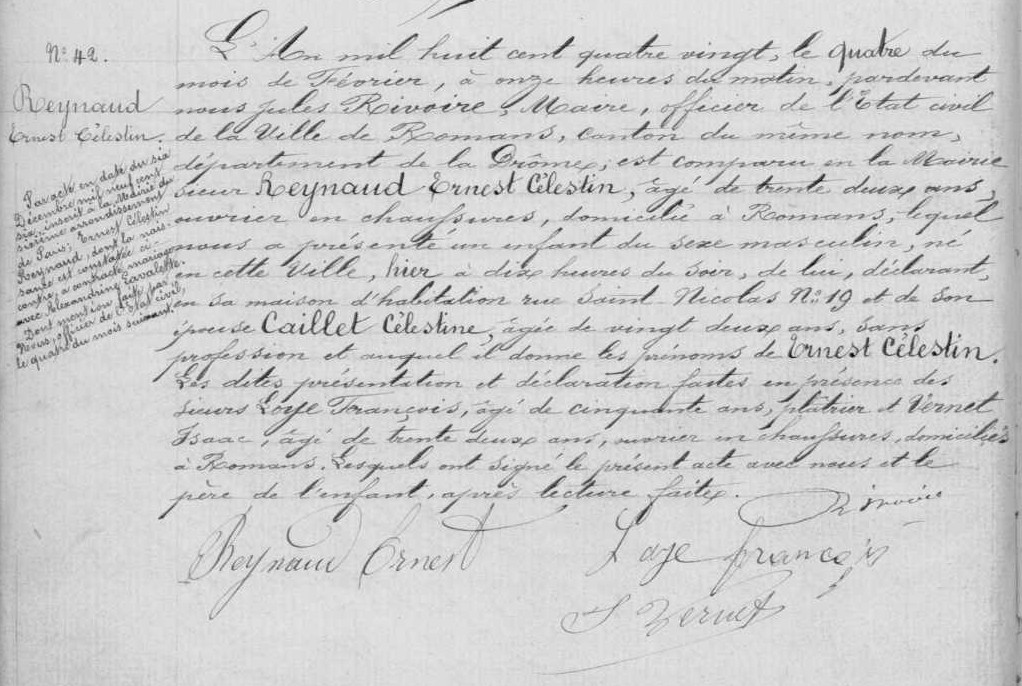 N° 42.
Reynaud
Ernest Célestin.
Par acte en date du six
Décembre mil neuf cent
six, inscrit à la Mairie du
sixième arrondissement
de Paris: Ernest Célestin
Reynaud, dont la nais-
sance est constatée ci-
contre, a contracté mariage
avec Alexandrine Lavalette.
Dont mention faite par
Nous, officier de l'Etat civil,
le quatre du mois suivant.
L'An mil huit cent quatre vingt, le quatre du
mois de Février, à onze heures du matin, pardevant
nous Jules Rivoire, Maire, officier de l'Etat civil
de la Ville de Romans, canton du même nom,
département de la Drôme, est comparu en la Mairie
sieur Reynaud Ernest Célestin, âgé de trente deux ans,
ouvrier en chaussures, domicilié à Romans, lequel
nous a présenté un enfant du sexe masculin, né
en cette Ville, hier à dix heures du soir, de lui, déclarant,
en sa maison d'habitation rue Saint-Nicolas N° 19 et de son
épouse Caillet Célestine, âgée de vingt deux ans, sans
profession et auquel il donne les prénoms de Ernest Célestin.
Les dites présentation et déclaration faites en présence des
sieurs Loye François, âgé de cinquante ans, plâtrier et Vernet
Isaac, âgé de trente deux ans, ouvrier en chaussures, domiciliés
à Romans. Lesquels ont signé le présent acte avec nous et le
père de l'enfant, après lecture faite.
Rivoire
Reynaud Ernest
Loye françois
I Vernet